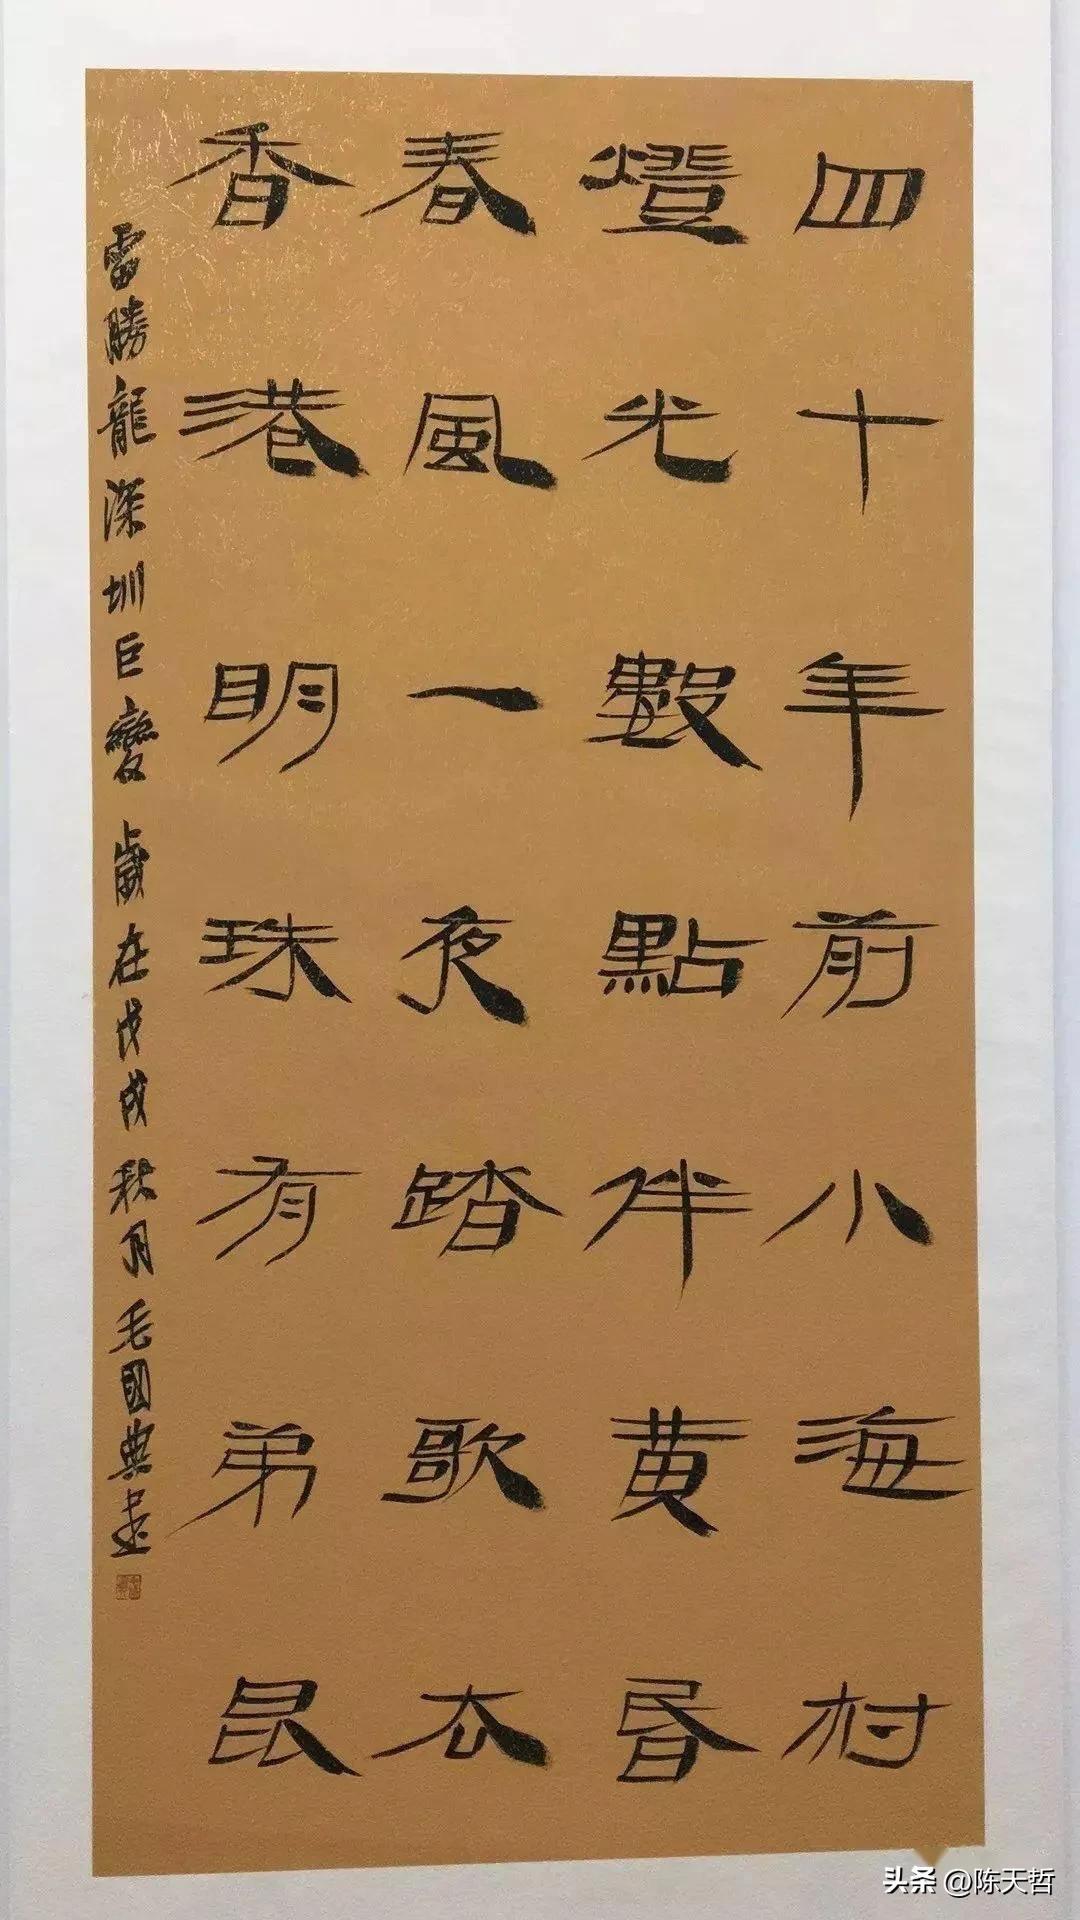 四十年前小海村
燈光數點伴黄昏
春風一夜踏歌去
香港明珠有弟昆
雷勝龍深圳巨變 歲在戊戌秋月毛國典書
头条 @陈天哲